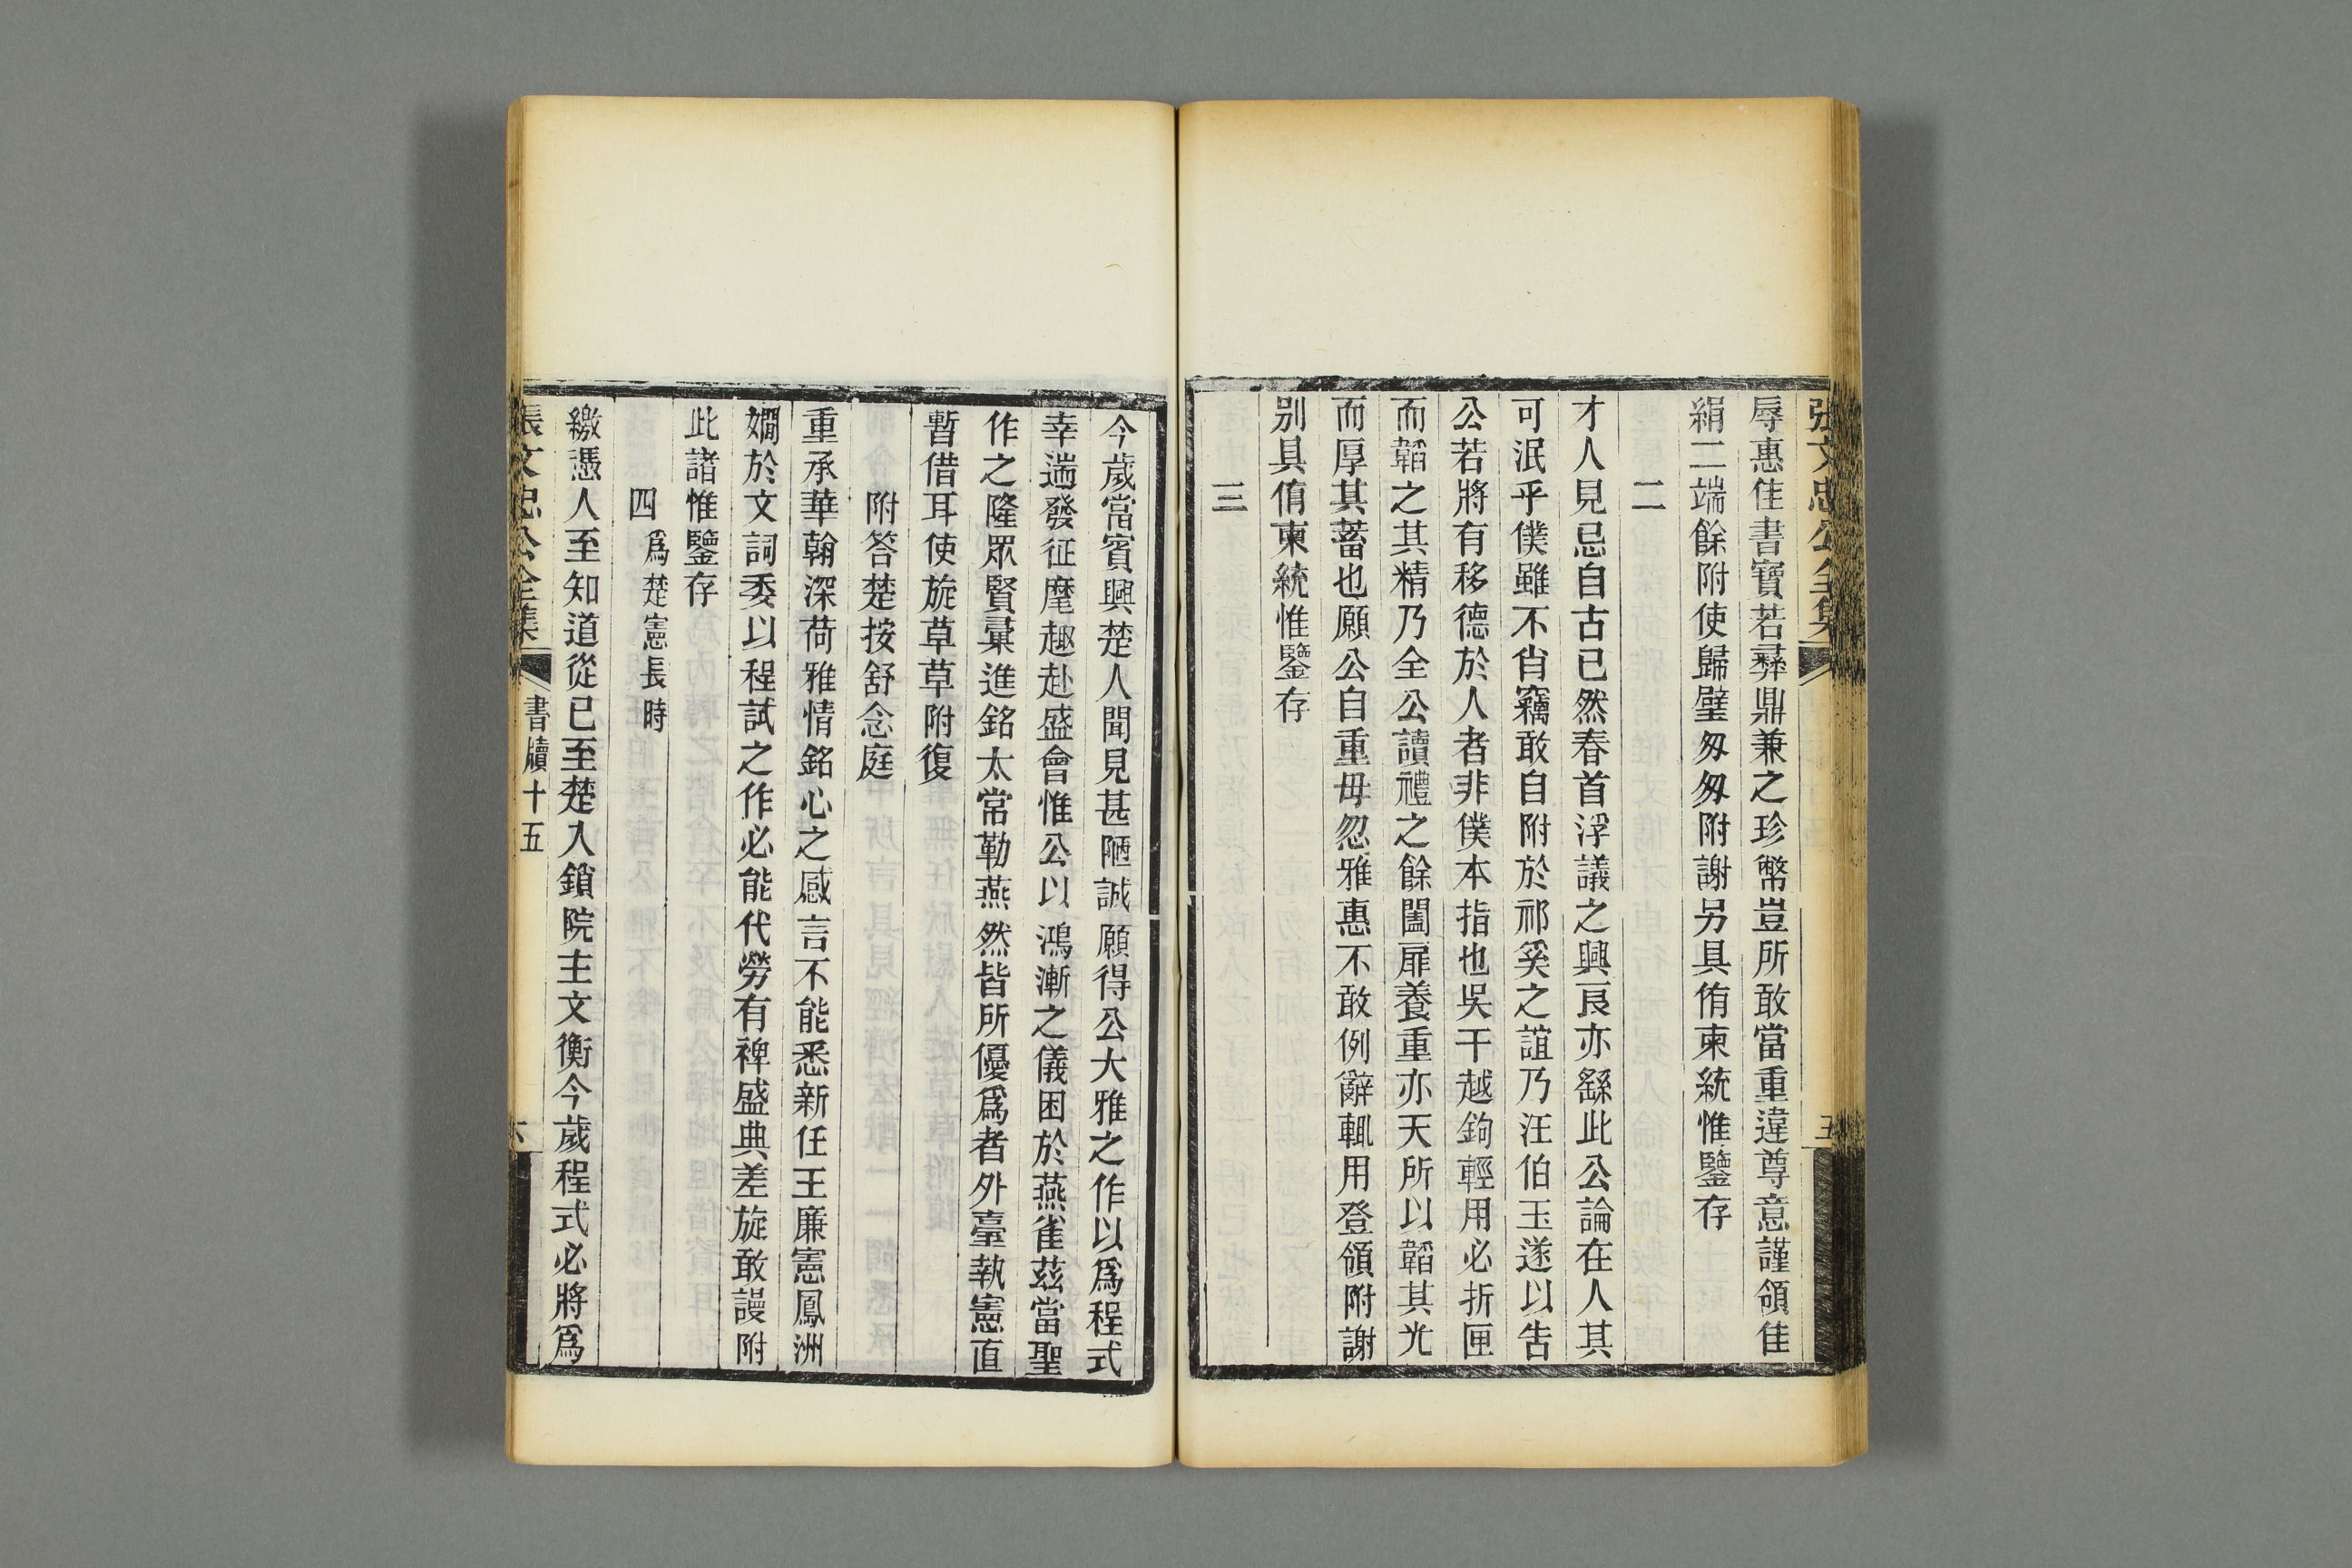 張文忠公全集
五
辱惠佳書寶若彞鼎兼之珍幣豈所敢當重違尊意謹領佳
絹二端餘附使歸璧匆匆附謝另具侑柬統惟鑒存
二
才人見忌自古已然春首浮議之興良亦繇此公論在人其
可泯乎僕雖不肖竊敢自附於祁奚之誼乃汪伯玉遂以告
公若將有移德於人者非僕本指也吳干越鉤輕用必折匣
而韜之其精乃全公讀禮之餘闔扉養重亦天所以韜其光
而厚其蓄也願公自重毋忽雅惠不敢例辭輒用登領附謝
别具侑柬統惟鑒存
三
今歲當賓興楚人聞見甚陋誠願得公大雅之作以爲程式
幸遄發征麾趣赴盛會惟公以鴻漸之儀困於燕雀茲當聖
作之隆眾賢彙進銘太常勒燕然皆所優爲者外臺執憲直
暫借耳使旋草草附復
附答楚按舒念庭
重承華翰深荷雅情銘心之感言不能悉新任王廉憲鳳洲
嫺於文詞委以程試之作必能代勞有裨盛典差旋敢謾附
此諸惟鑒存
四 爲楚憲長時
繳憑人至知道從已至楚入鎖院主文衡今歲程式必將爲
張文忠公全集
書牘十五
六